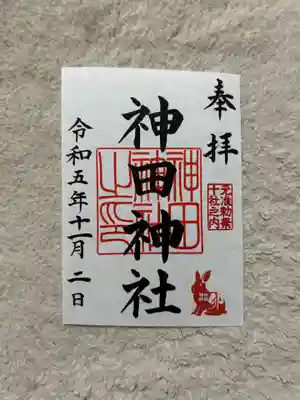 奉拝
元准勅祭
十社之内
神田神社
神田
神社
之印
令和五年十一月二日